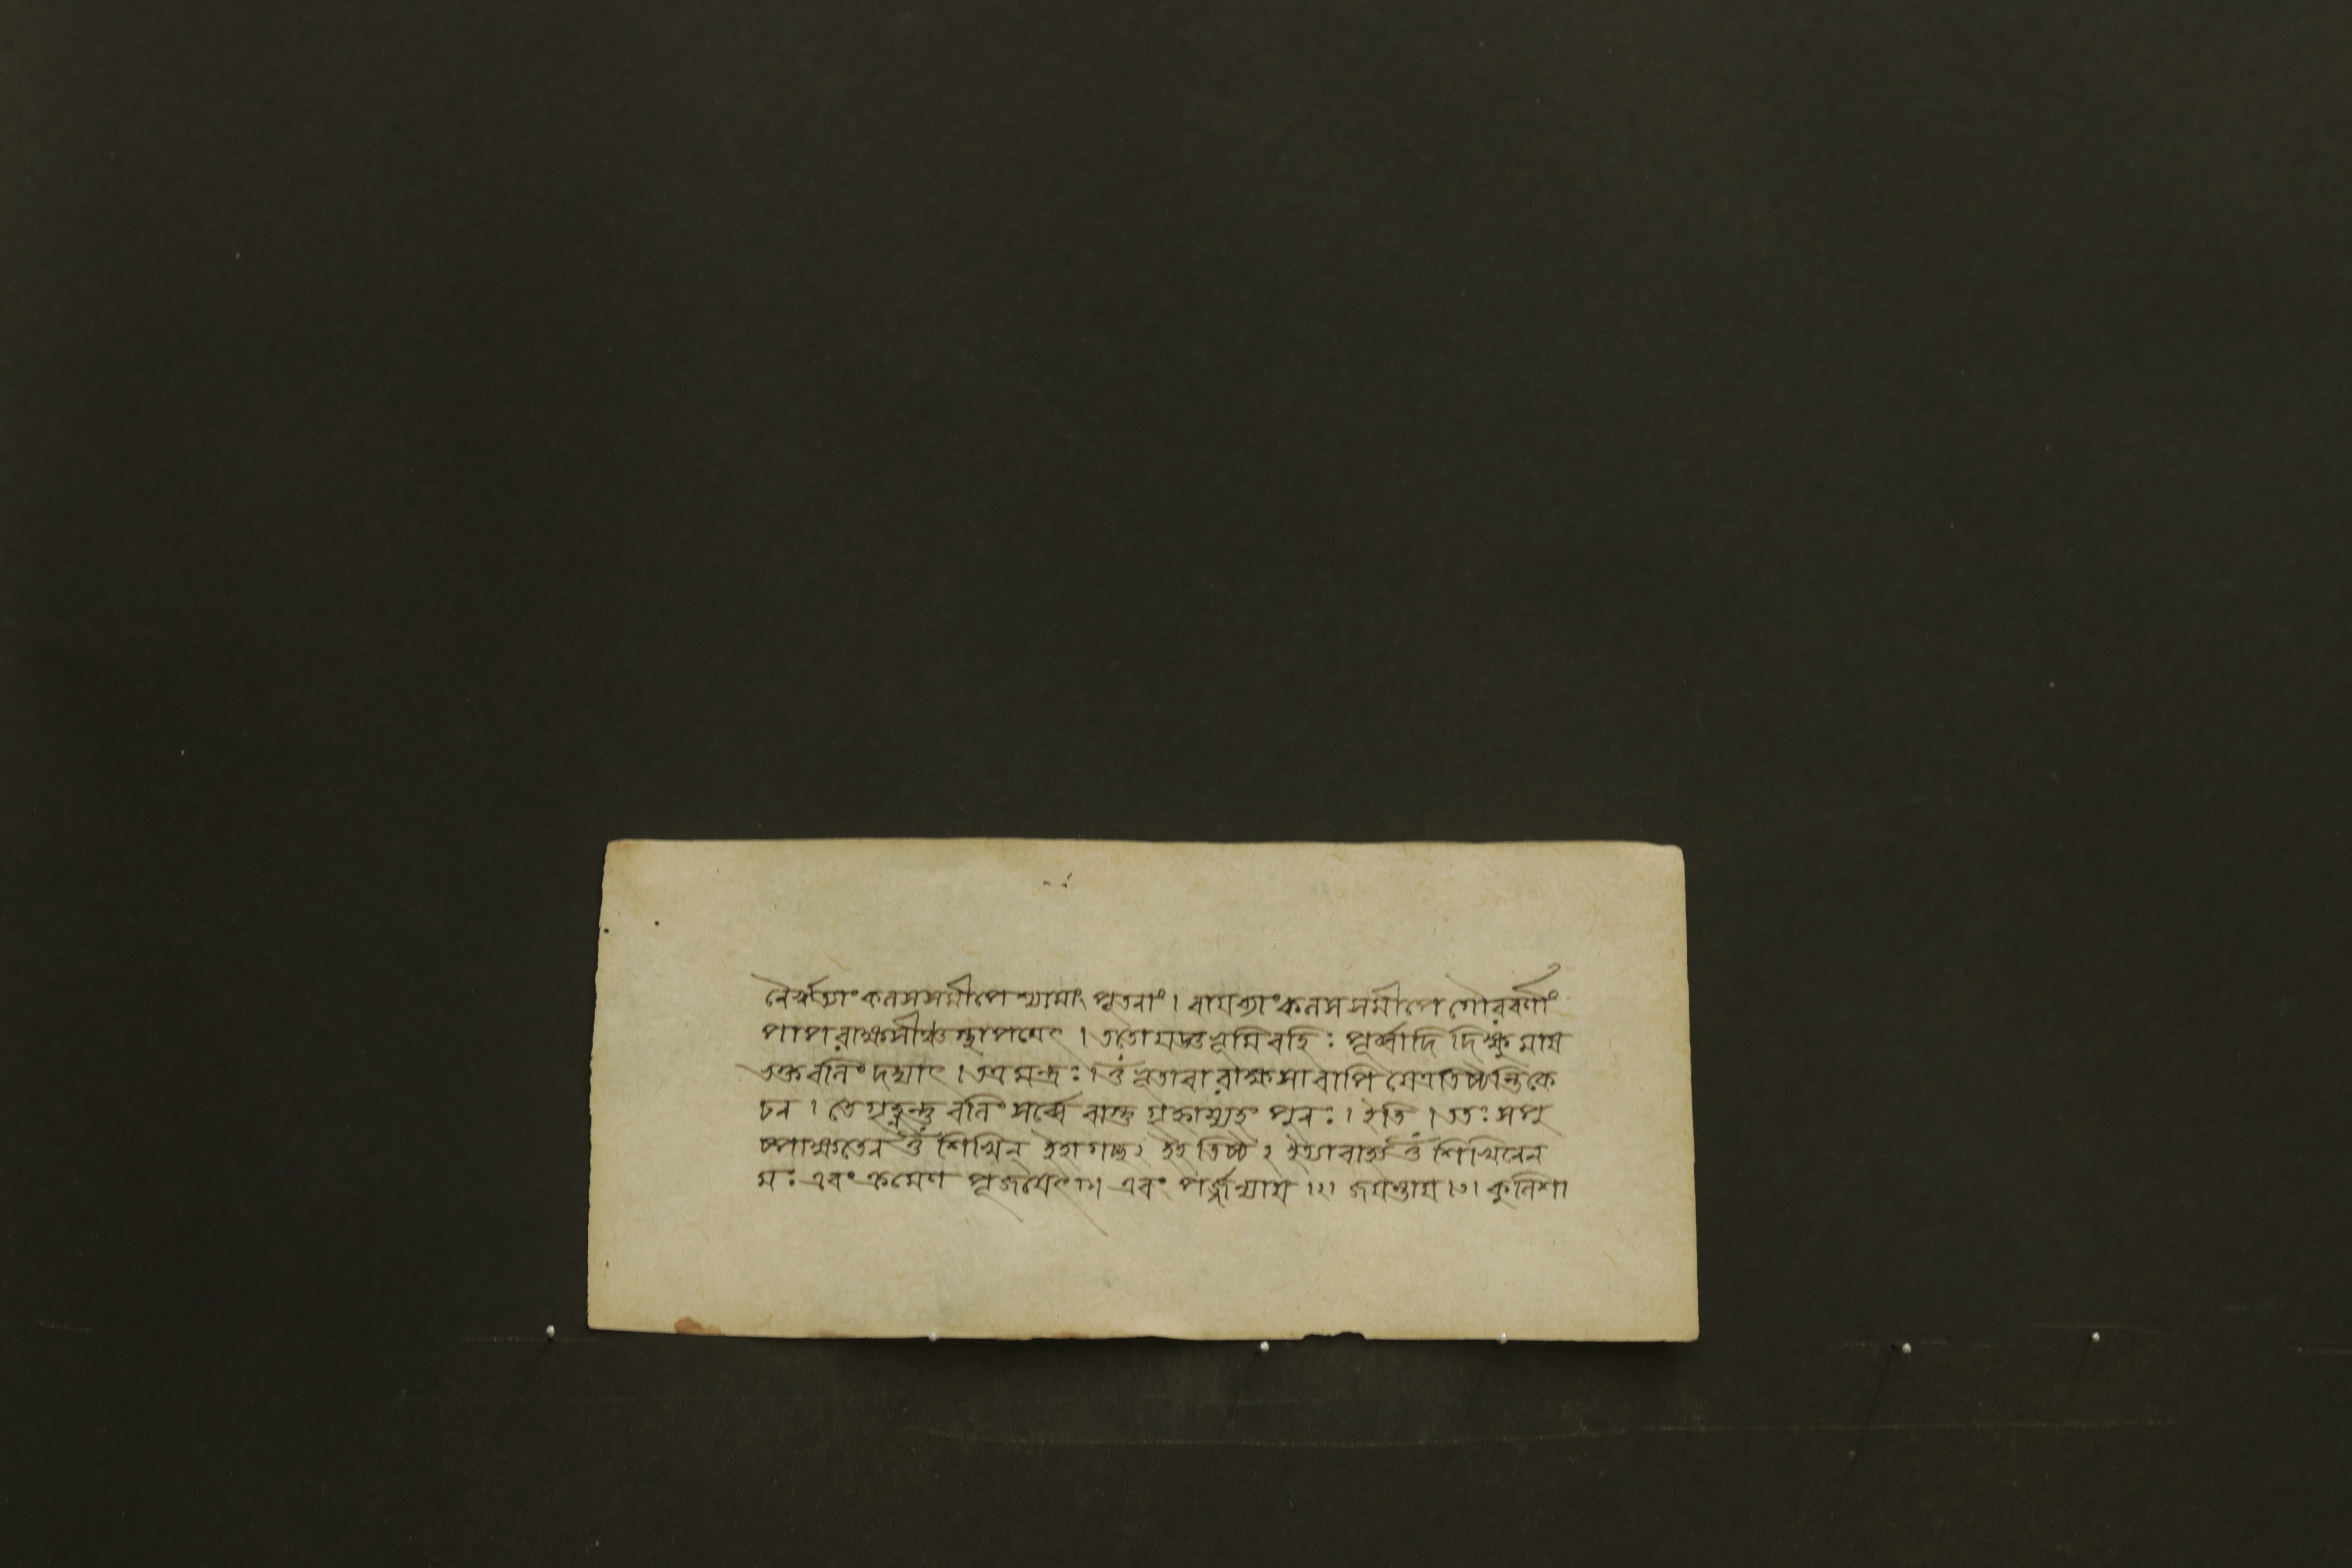 নৈরৃত্যাং কলসসমীপে শ্যামাং পূতনাং । বায়ব্যাং কলস সমীপে গৌরবর্ণাং
পাপরাক্ষসীঞ্চ স্থাপয়েৎ । ততো মণ্ডল ভূমি বহিঃ পূর্ব্বাদি দিক্ষু মাষ
ভক্ত বলিং দদ্যাৎ । তত্র মন্ত্রঃ । ওঁ ভূতা বা রাক্ষসা বাপি যেঽত্র তিষ্ঠন্তি কে
চন । তে গৃহ্ণন্তু বলিং সর্ব্বে বাস্তু গৃহ্নাম্যহং পুনঃ । ইতি । ততঃ সপু
ষ্পাক্ষতেন ওঁ শিখিন্ ইহাগচ্ছ ২ ইহ তিষ্ঠ ২ ইত্যাবাহ্য ওঁ শিখিনে ন
মঃ এবং ক্রমেণ পূজয়েৎ ।১। এবং পর্জ্জন্যায় ।২। জয়ন্তায় ।৩। কুলিশা